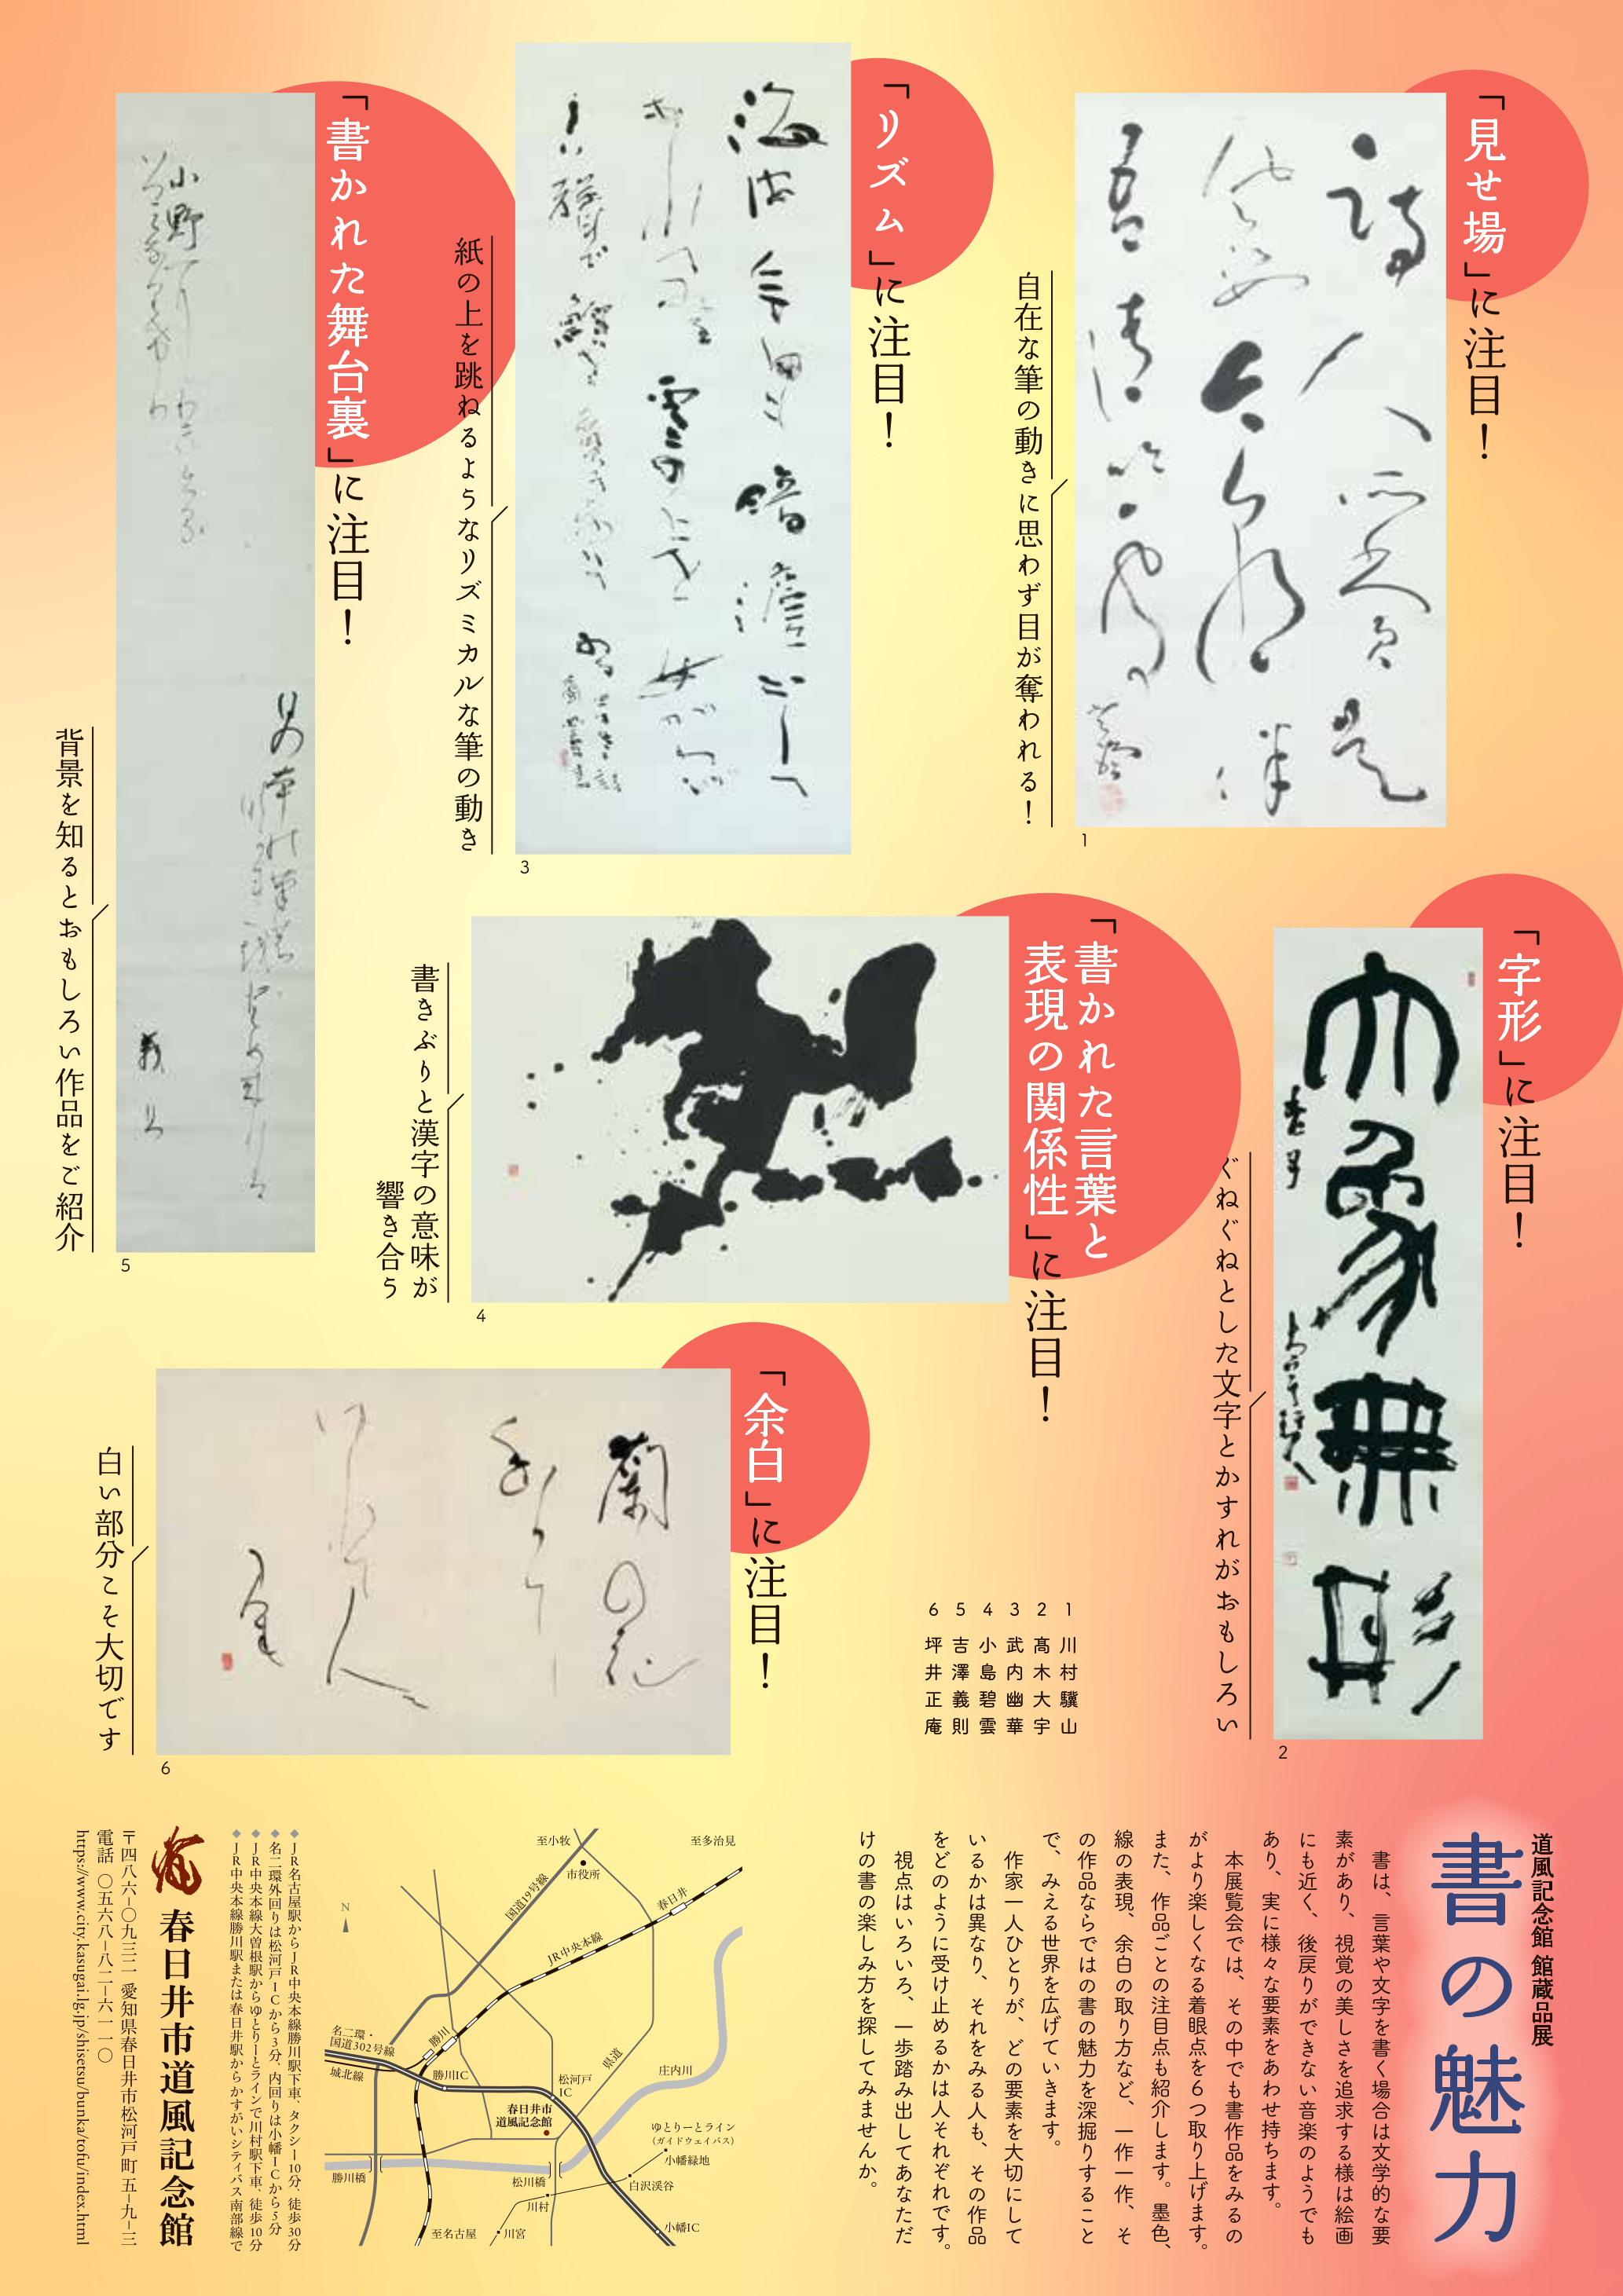 「見せ場」に注目！
自在な筆の動きに思わず目が奪われる！
1
「リズム」に注目！
紙の上を跳ねるようなリズミカルな筆の動き
3
「書かれた舞台裏」に注目！
背景を知るとおもしろい作品をご紹介
5
「字形」に注目！
ぐねぐねとした文字とかすれがおもしろい
2
「書かれた言葉と
表現の関係性」に注目！
書きぶりと漢字の意味が
響き合う
4
「余白」に注目！
白い部分こそ大切です
6
蘭の花
1 川村驥山
2 髙木大宇
3 武内幽華
4 小島碧雲
5 吉澤義則
6 坪井正庵
道風記念館 館蔵品展
書の魅力
書は、言葉や文字を書く場合は文学的な要
素があり、視覚の美しさを追求する様は絵画
にも近く、後戻りができない音楽のようでも
あり、実に様々な要素をあわせ持ちます。
本展覧会では、その中でも書作品をみるの
がより楽しくなる着眼点を6つ取り上げます。
また、作品ごとの注目点も紹介します。墨色、
線の表現、余白の取り方など、一作一作、そ
の作品ならではの書の魅力を深掘りすること
で、みえる世界を広げていきます。
作家一人ひとりが、どの要素を大切にして
いるかは異なり、それをみる人も、その作品
をどのように受け止めるかは人それぞれです。
視点はいろいろ、一歩踏み出してあなただ
けの書の楽しみ方を探してみませんか。
至小牧
至多治見
市役所
国道19号線
春日井
JR中央本線
N
名二環・
国道302号線
勝川
城北線
勝川IC
松河戸
IC
県道
庄内川
春日井市
道風記念館
ゆとりーとライン
（ガイドウェイバス）
小幡緑地
勝川橋
松川橋
白沢渓谷
川村
至名古屋
川宮
小幡IC
◆JR名古屋駅からJR中央本線勝川駅下車、タクシー10分、徒歩30分
◆名二環外回りは松河戸ICから3分、内回りは小幡ICから5分
◆JR中央本線大曽根駅からゆとりーとラインで川村駅下車、徒歩10分
◆JR中央本線勝川駅または春日井駅からかすがいシティバス南部線で
春日井市道風記念館
〒四八六-〇九三二 愛知県春日井市松河戸町五-九-三
電話 〇五六八-八二-六一一〇
https://www.city.kasugai.lg.jp/shisetsu/bunka/tofu/index.html